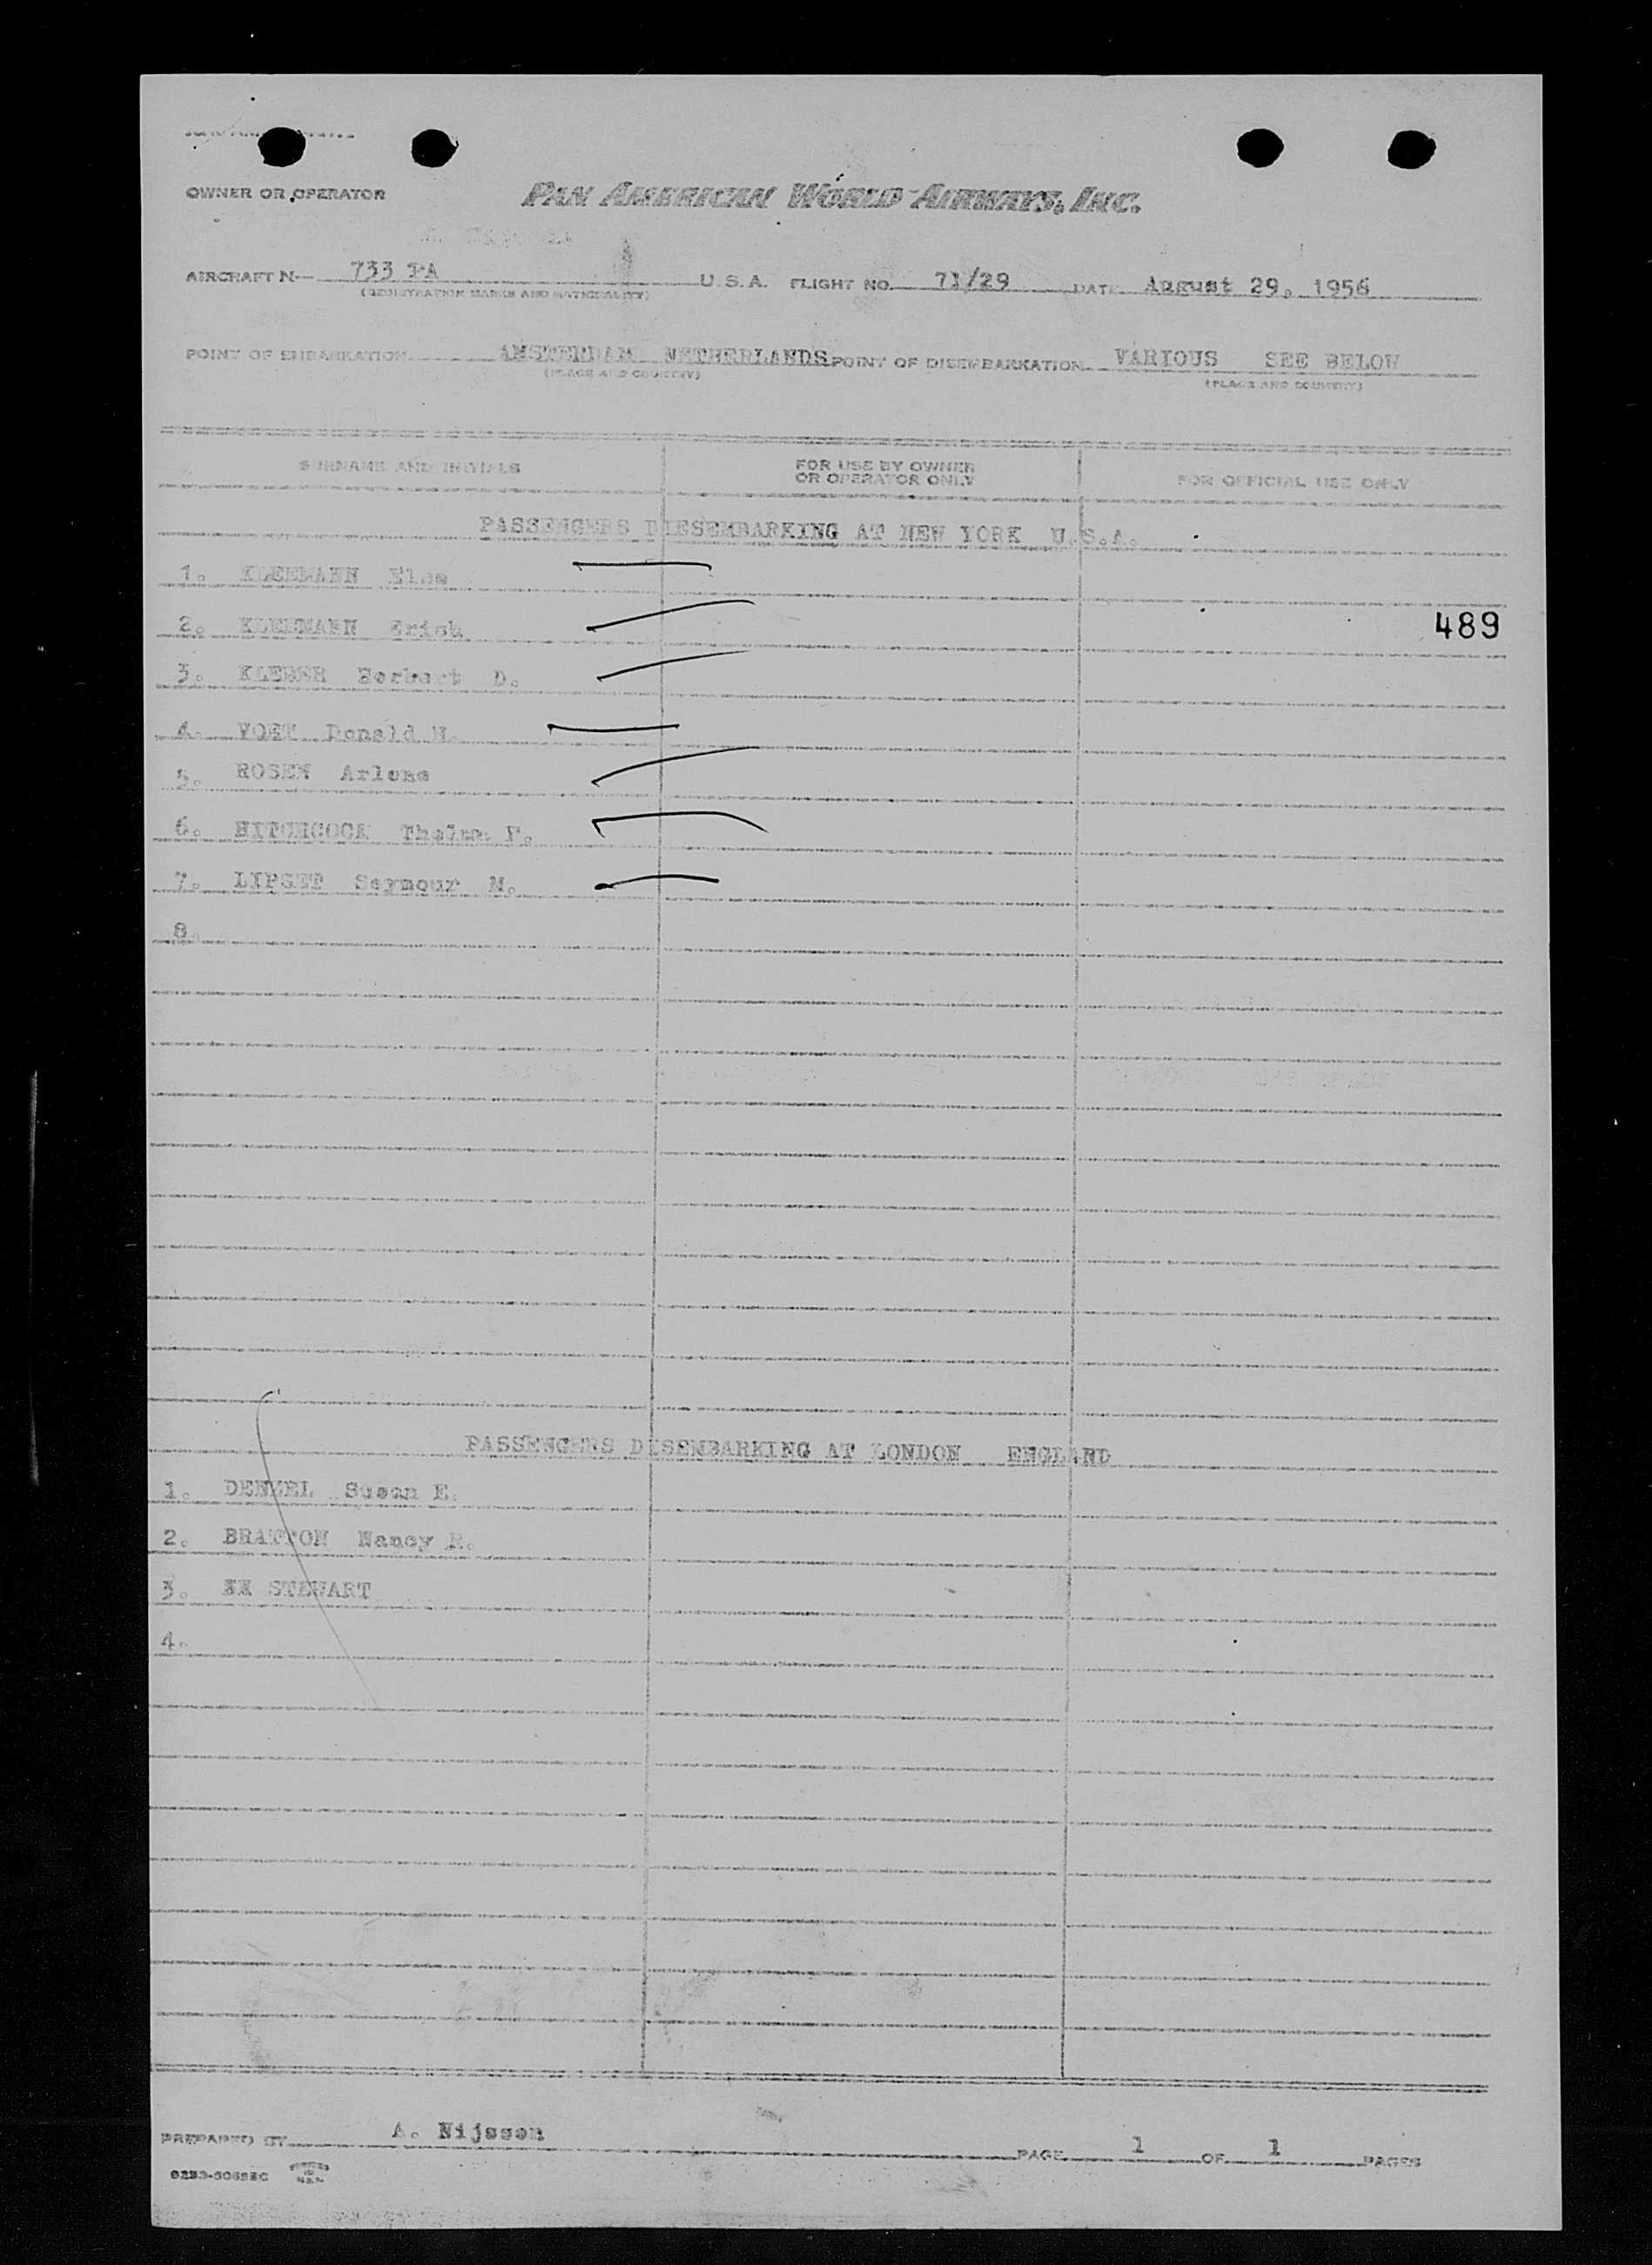 OWNER OR OPERATOR PAN AMERICAN WORLD AIRWAYS, INC.
AIRCRAFT N— 733 PA U.S.A. FLIGHT NO. 71/29 DATE August 29, 1956
(REGISTRATION MARKS AND NATIONALITY)
POINT OF EMBARKATION AMSTERDAM NETHERLANDS POINT OF DISEMBARKATION VARIOUS SEE BELOW
(PLACE AND COUNTRY) (PLACE AND COUNTRY)
SURNAME AND INITIALS FOR USE BY OWNER OR OPERATOR ONLY FOR OFFICIAL USE ONLY
PASSENGERS DIESEMBARKING AT NEW YORK U.S.A.
1. KLEEMANN Else
2. KLEEMANN Erich 489
3. KLEBER Herbert D.
4. VOET Donald H.
5. ROSEN Arlene
6. HITCHCOCK Thelma F.
7. LIPSET Seymour M.
8.
PASSENGERS DISEMBARKING AT LONDON ENGLAND
1. Susan E.
2. BRATTON Nancy R.
3. STEWART
4.
PREPARED BY A. Nijssen PAGE 1 OF 1 PAGES
PRINTED IN U.S.A.